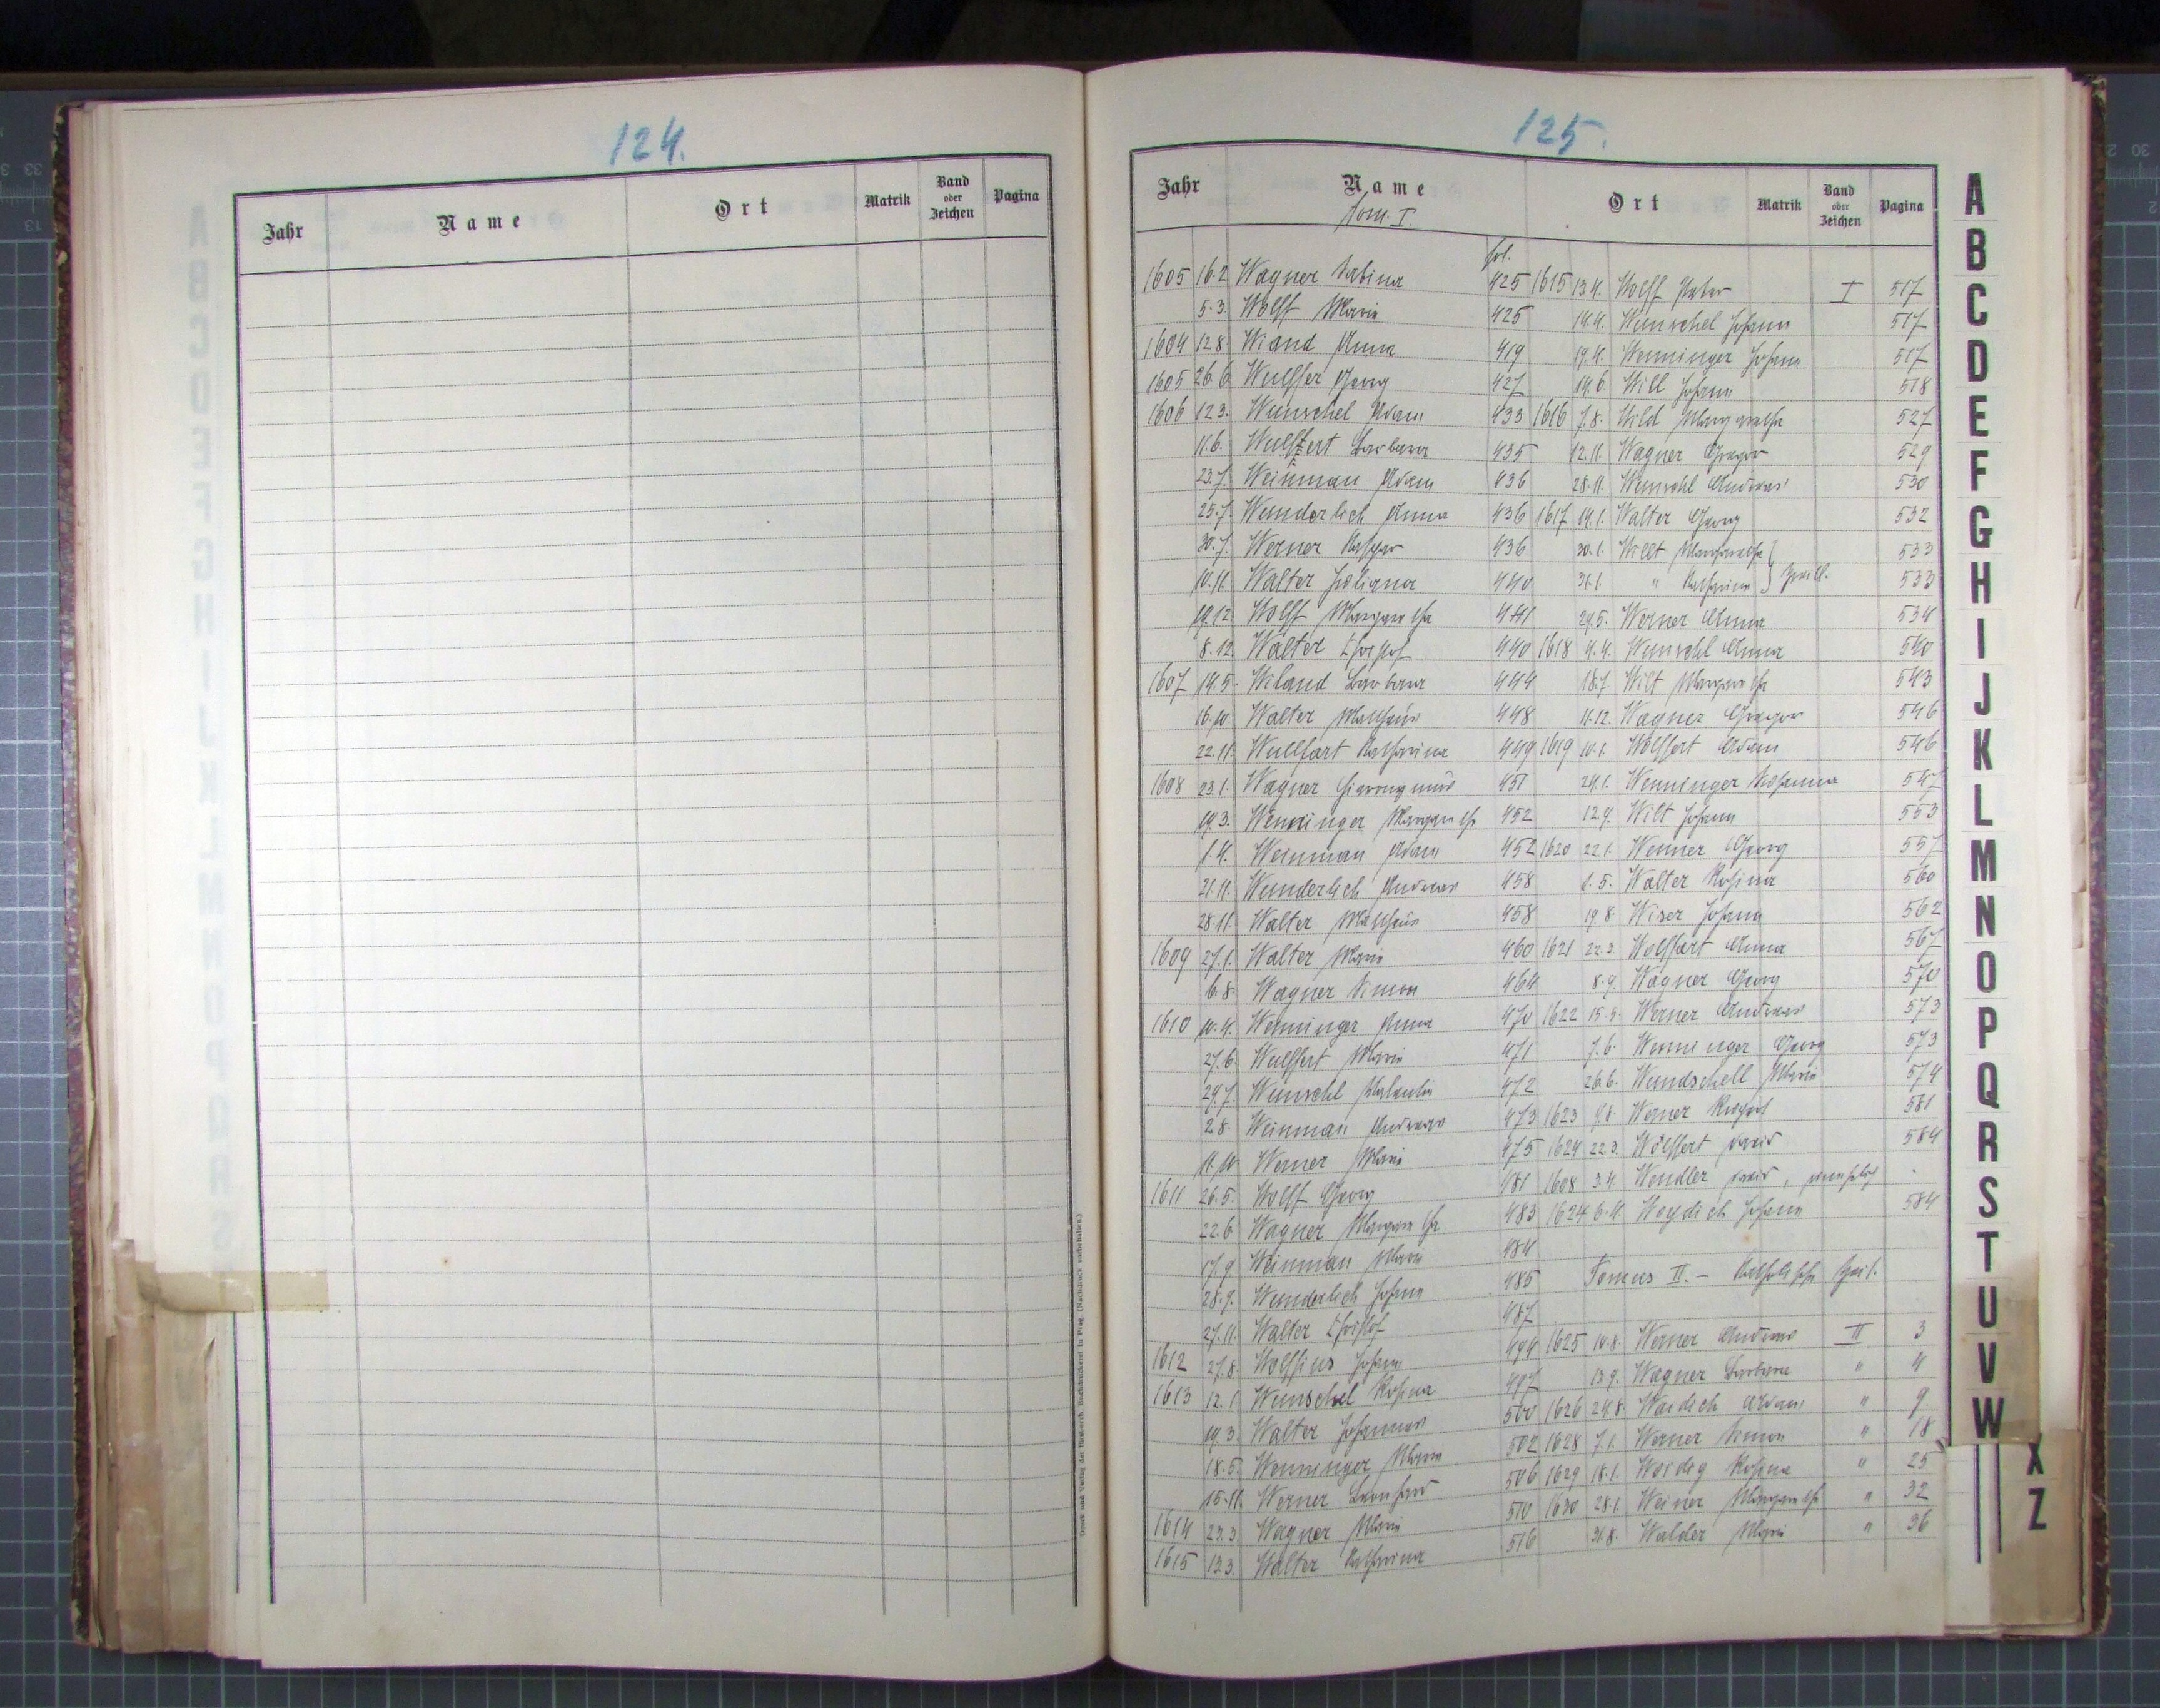 124.
Jahr Name Ort Matrik Band oder Zeichen Pagina
Druck und Verlag der Buchdruckerei in Prag. (Nachdruck vorbehalten.)
125.
Jahr Name Ort Matrik Band oder Zeichen Pagina
Tom. I.
fol.
1605 16.2 Wagner Sabina 425 1615 13.4. Wolff Peter I 517
5.3. Wolff Marie 425 14.4. Wunschel Johann 517
1604 12.8. Wiand Anna 419 19.4. Wenninger Johann 517
1605 26.6 Wulffer Georg 427 14.6. Will Johann 518
1606 12.3. Wunschel Adam 433 1616 7.8. Wild Margaretha 527
11.6. Wulffert Barbara 435 12.11. Wagner Gregor 529
23.7. Weinman Adam 436 28.11. Wunschl Andreas 530
25.7. Wunderlich Anna 436 1617 14.1. Walter Georg 532
30.7. Werner Kaspar 436 30.1. Willt Margaretha 533
10.11. Walter Juliana 440 31.1. " Katharina } Zwill. 533
19.12. Wolff Margaretha 441 29.5. Werner Anna 534
8.12. Walter Christof 440 1618 4.4. Wunschl Anna 540
1607 14.5. Wiland Barbara 444 18.7. Wilt Margaretha 543
16.10. Walter Matthäus 448 11.12. Wagner Gregor 546
22.11. Wullfart Katharina 449 1619 10.1. Wolffert Adam 546
1608 23.1. Wagner Hieronymus 451 24.1. Wenninger Susanna 547
19.3. Wenninger Margaretha 452 12.9. Wilt Johann 553
1.4. Weinman Adam 452 1620 22.1. Wenner Georg 557
21.11. Wunderlich Andreas 458 1.5. Walter Rosina 560
28.11. Walter Matthäus 458 19.8. Wiser Johann 562
1609 27.1. Walter Marie 460 1621 22.3. Wolffart Anna 567
6.8. Wagner Simon 464 8.9. Wagner Georg 570
1610 10.4. Wenninger Anna 470 1622 15.5. Werner Andreas 573
27.6. Wulffert Marie 471 7.6. Wenninger Georg 573
29.7. Wunschl Valentin 472 26.6. Wundschell Marie 574
2.8. Weinman Andreas 473 1623 9.8. Werner 581
11.10. Werner Marie 475 1624 22.3. Wölffert David 584
1611 26.5. Wolff Georg 481 1608 3.4. Wendler David,
22.6. Wagner Margaretha 483 1624 6.11. Weydich Johann 584
17.9. Weinman Marie 484
28.9. Wunderlich Johann 485 Tomus II. – Katholische Zeit.
27.11. Walter Christof 487
1612 27.8. Wolffius Johann 494 1625 10.8. Werner Andreas II 3
1613 12.1. Wunschel Rosina 497 13.9. Wagner Barbara " 4
19.3. Walter Johannes 500 1626 24.8. Waidich Adam " 9.
18.5. Wenninger Marie 502 1628 7.1. Werner Simon " 18
15.11. Werner Leonhard 506 1629 18.1. Woidig Rosina " 25
1614 23.3. Wagner Marie 510 1630 28.1. Weiner Margaretha " 32
1615 13.3. Walter Katharina 516 31.8. Walder Marie " 36
A
B
C
D
E
F
G
H
I
J
K
L
M
N
O
P
Q
R
S
T
U
V
W
X
Z